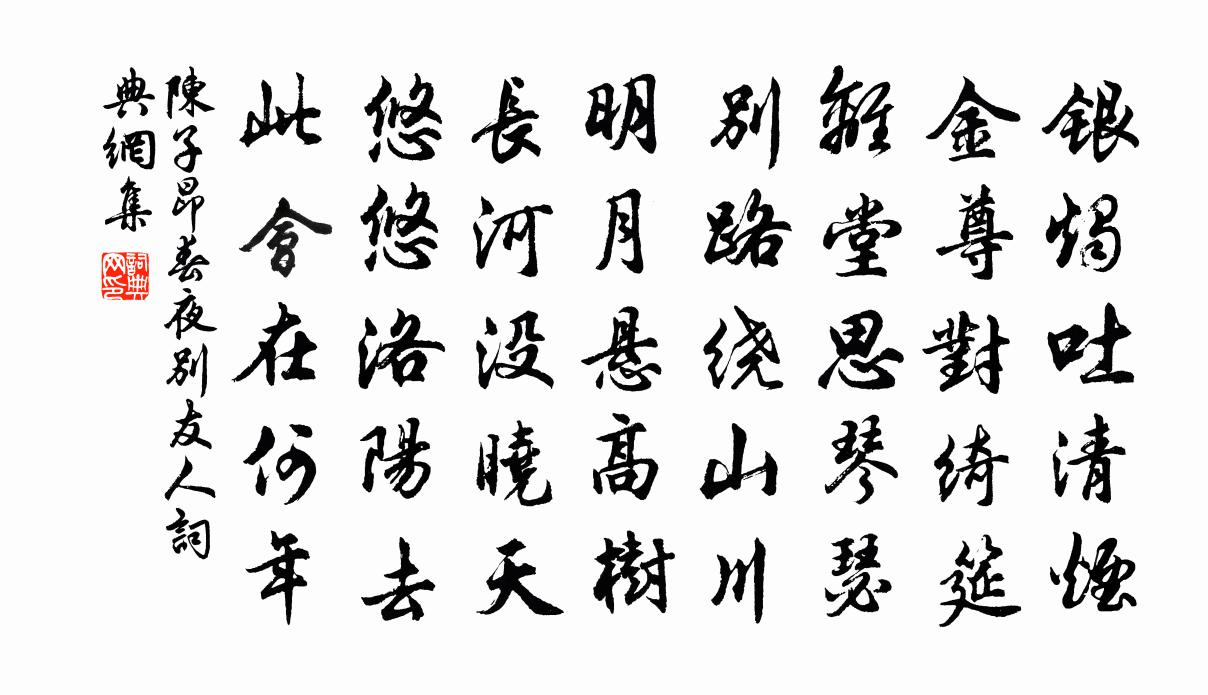 銀燭吐清煙
金尊對綺筵
離堂思琴瑟
別路绕山川
明月悬高樹
長河没曉天
悠悠洛陽去
此會在何年
陳子昂春夜别友人詞
典網集
詞典网印